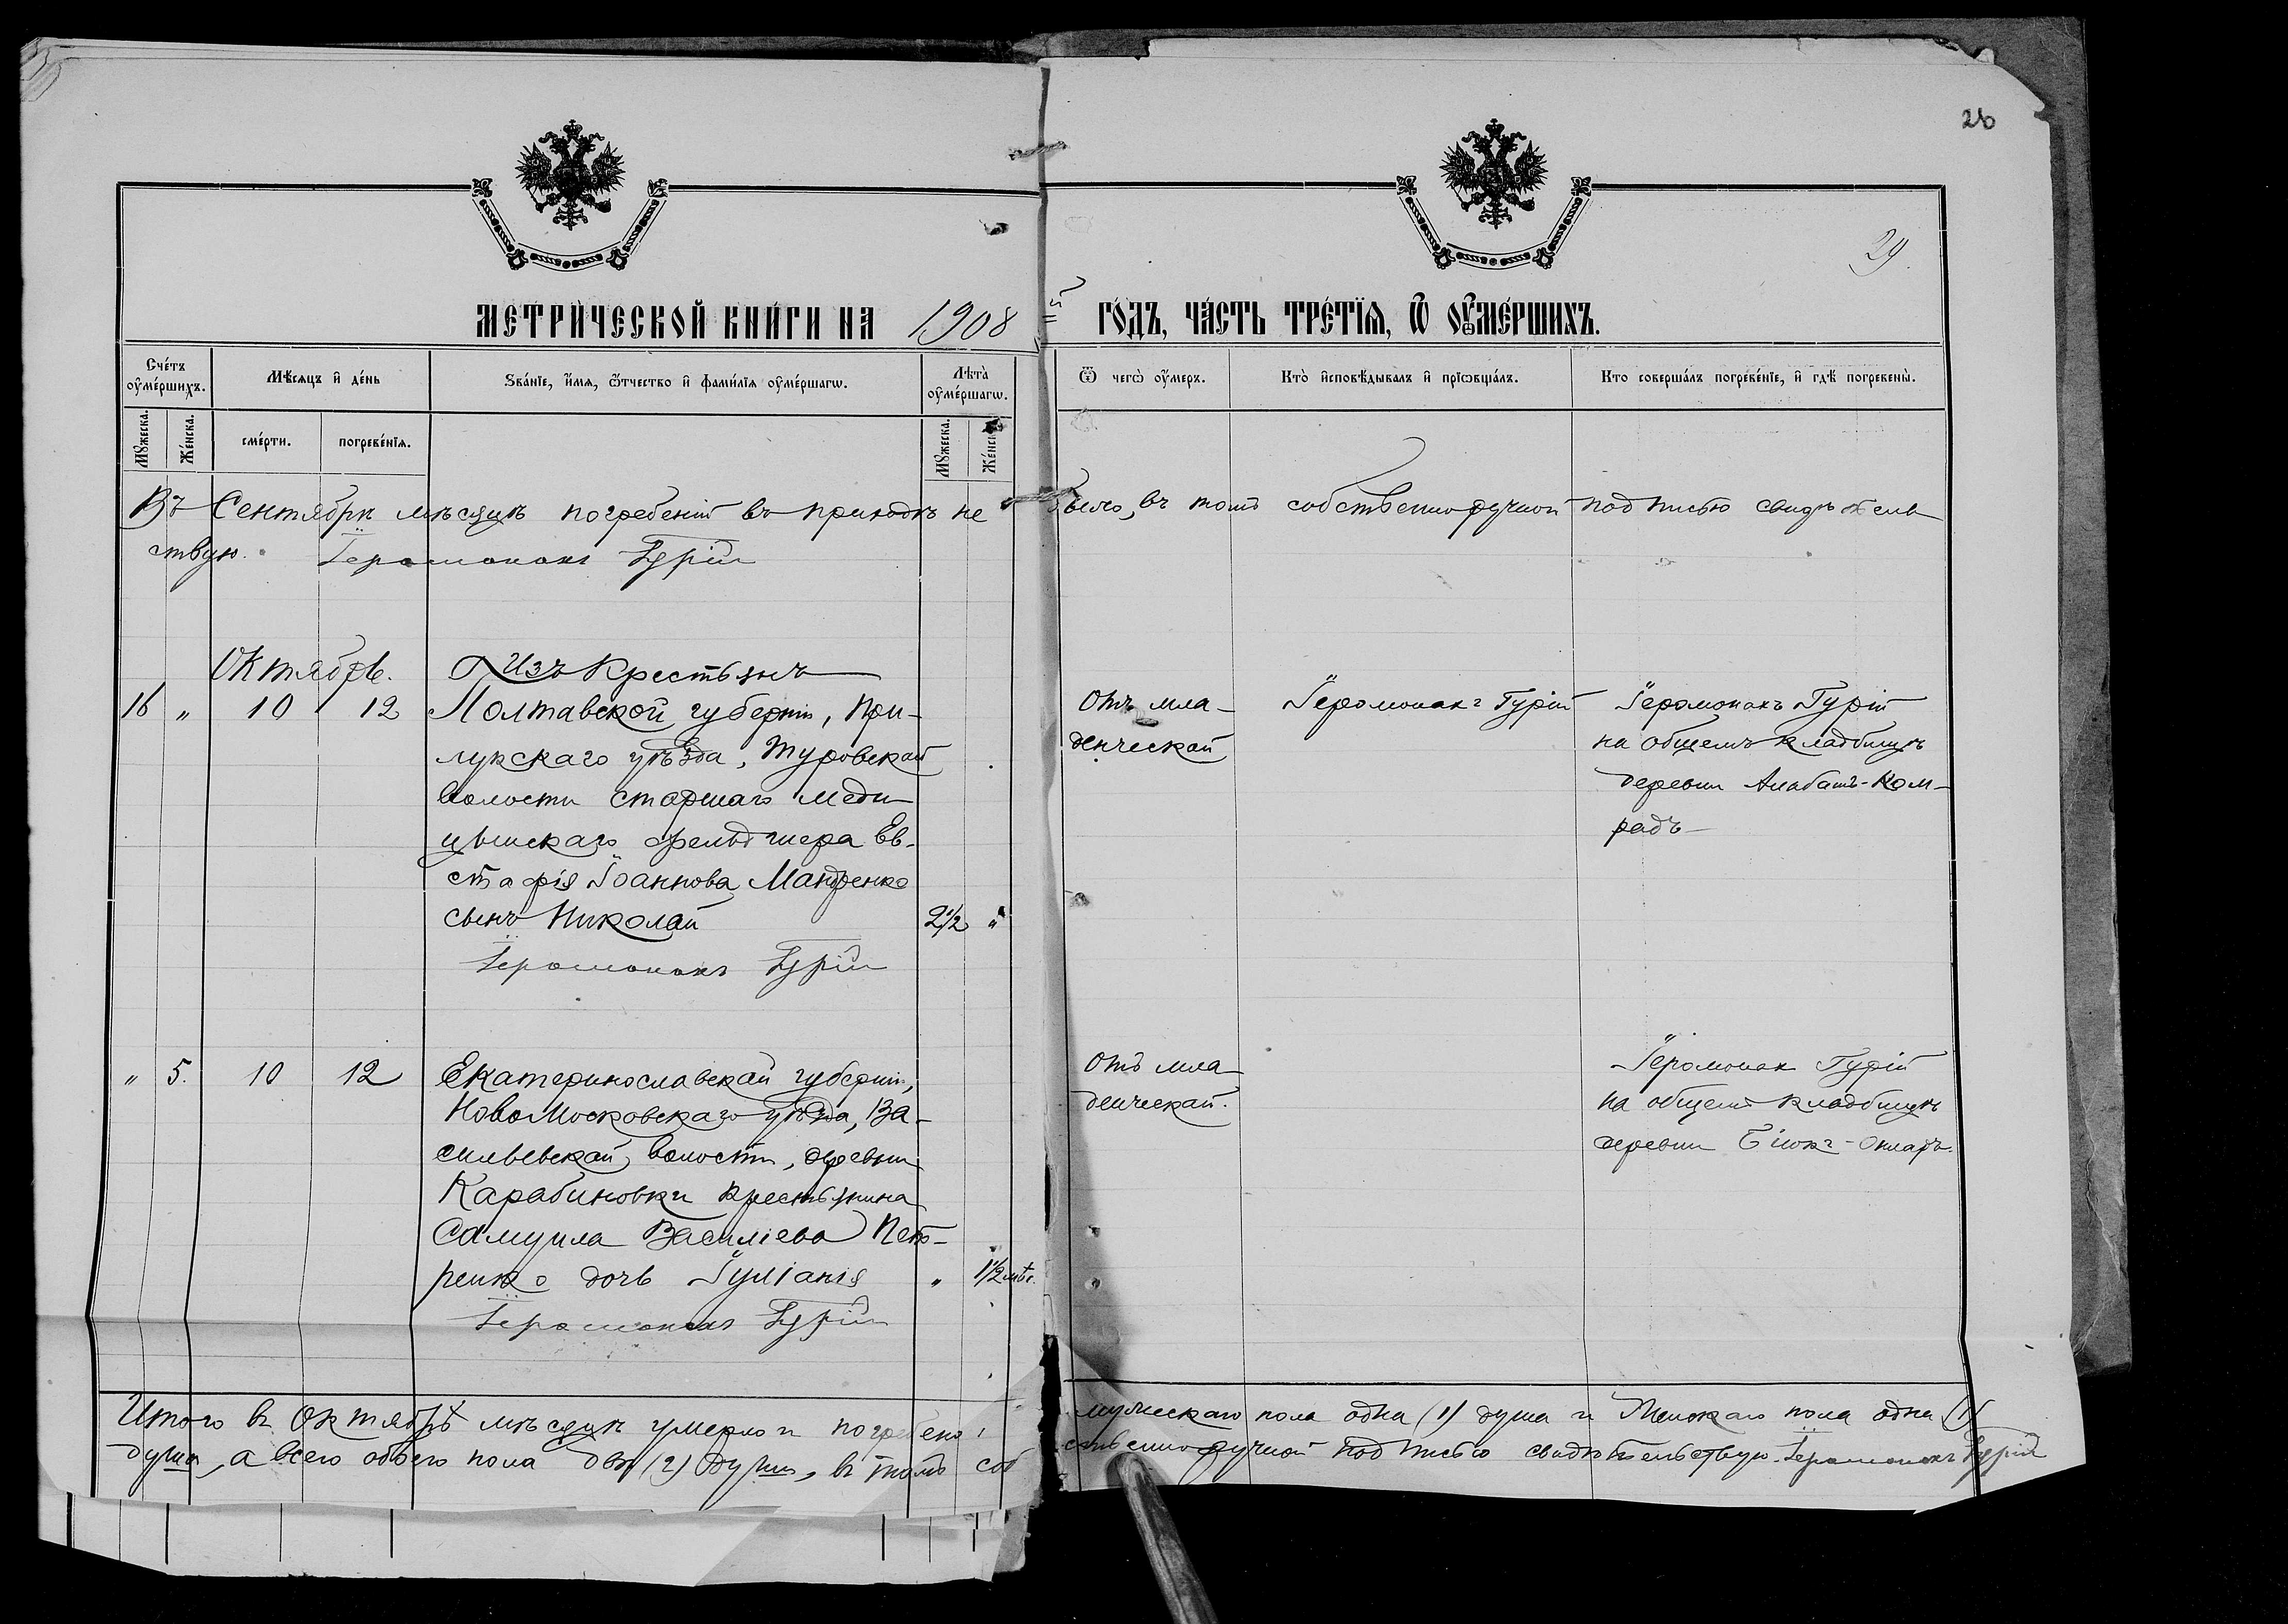 28
29.
МЕТРИЧЕСКОЙ КНИГИ НА 1908й ГОДЪ, ЧАСТЬ ТРЕТЇѦ, Ѿ ОУМЕРШИХЪ.
Счетъ оумершихъ.
Мѣсяцъ и день
Званїе, имя, ѿтчество и фамилїя оумершагѡ.
Лѣта оумершагѡ.
Ѿ чегѡ оумеръ.
Кто исповѣдывалъ и прїѡбщалъ.
Кто совершалъ погребенїе, и гдѣ погребены.
Мужеска.
Женска.
смерти.
погребенїя.
Мужеска.
Женска.
Въ Сентябрѣ мѣсяцѣ погребенiй въ приходѣ не было, въ томъ собственноручной подписью свидѣтель
ствую. Іеромонахъ Гурій
Октябрь.
Изъ Крестьянъ
16 " 10 12 Полтавской губерніи, При-
лукскаго уѣзда, Туровской
волости старшаго меди
цынскаго фельдшера Ев-
стафія Іоаннова Мандренко
сынъ Николай 2½ "
Іеромонахъ Гурій
Отъ мла-
денческой
Іеромонахъ Гурій
Іеромонахъ Гурій
на общемъ кладбищѣ
деревни Алабашъ-Ком-
радъ
" 5. 10 12 Екатеринославской губерніи,
Новомосковскаго уѣзда, Ва-
сильевской волости, деревни
Карабиновки крестьянина
Самуила Василіева Пет-
ренко дочь Іуліанія " 1½ мѣс.
Іеромонахъ Гурій
Отъ мла
денческой.
Іеромонах Гурій
на общемъ кладбищѣ
деревни Біюкъ-Онларъ.
Итого въ Октябрѣ мѣсяцѣ умерло и погребено: мужескаго пола одна (1) душа и Женскаго пола одна (1)
душа, а всего обоего пола двѣ (2) души, въ томъ собственноручной подписью свидѣтельствую. Іеромонахъ Гурій